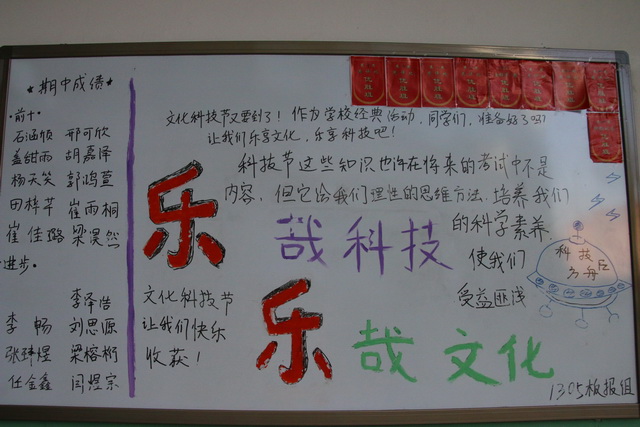 ★期中成绩★
·前十·
石涵旭 邢可欣
盖甜雨 胡嘉泽
杨天笑 郭鸿萱
田梓芊 崔雨桐
崔佳璐 梁淏然
进步·
李泽浩
李畅 刘思源
张玮煜 梁榕桁
任金鑫 闫煜宗
文化科技节又要到了！作为学校经典活动，同学们，准备好了吗？
让我们乐享文化，乐享科技吧！
科技节这些知识也许在将来的考试中不是
内容，但它给我们理性的思维方法，培养我们
的科学素养
使我们
受益匪浅
乐哉科技
乐哉文化
文化科技节
让我们快乐
收获！
科技
1305板报组